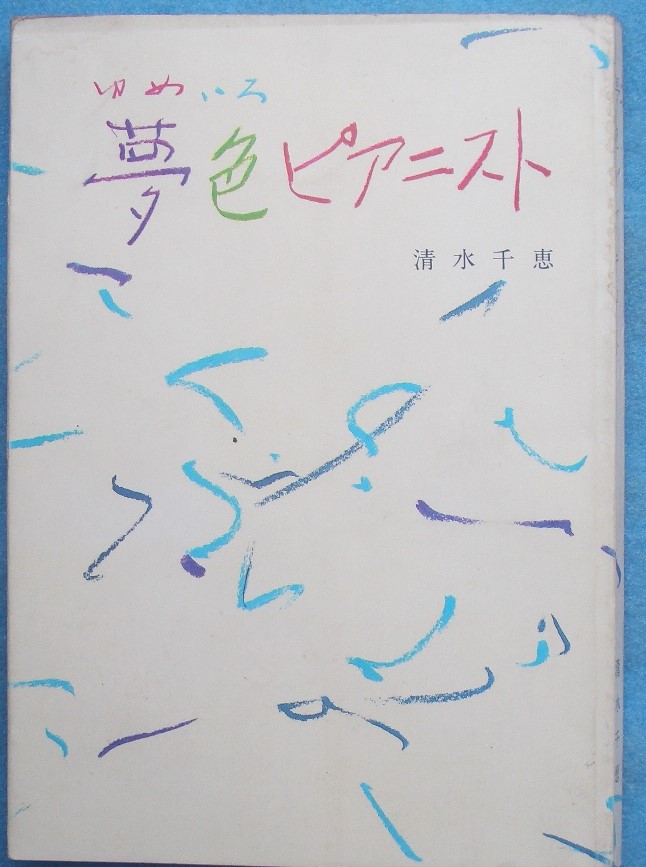 ゆめいろ
夢色ピアニスト
清水千恵